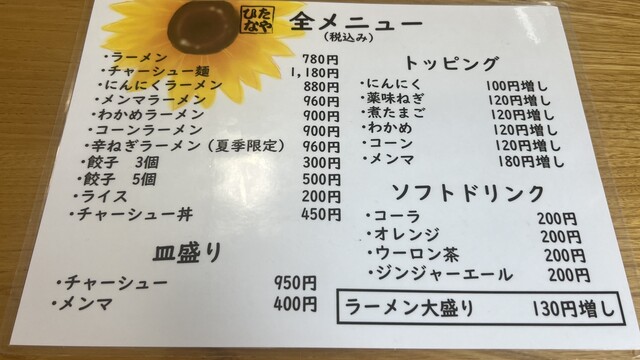 ぴたなや
全メニュー
(税込み)
・ラーメン 780円
・チャーシュー麺 1,180円
・にんにくラーメン 880円
・メンマラーメン 960円
・わかめラーメン 900円
・コーンラーメン 900円
・辛ねぎラーメン(夏季限定) 960円
・餃子 3個 300円
・餃子 5個 500円
・ライス 200円
・チャーシュー丼 450円
皿盛り
・チャーシュー 950円
・メンマ 400円
トッピング
・にんにく 100円増し
・薬味ねぎ 120円増し
・煮たまご 120円増し
・わかめ 120円増し
・コーン 120円増し
・メンマ 180円増し
ソフトドリンク
・コーラ 200円
・オレンジ 200円
・ウーロン茶 200円
・ジンジャーエール 200円
ラーメン大盛り 130円増し